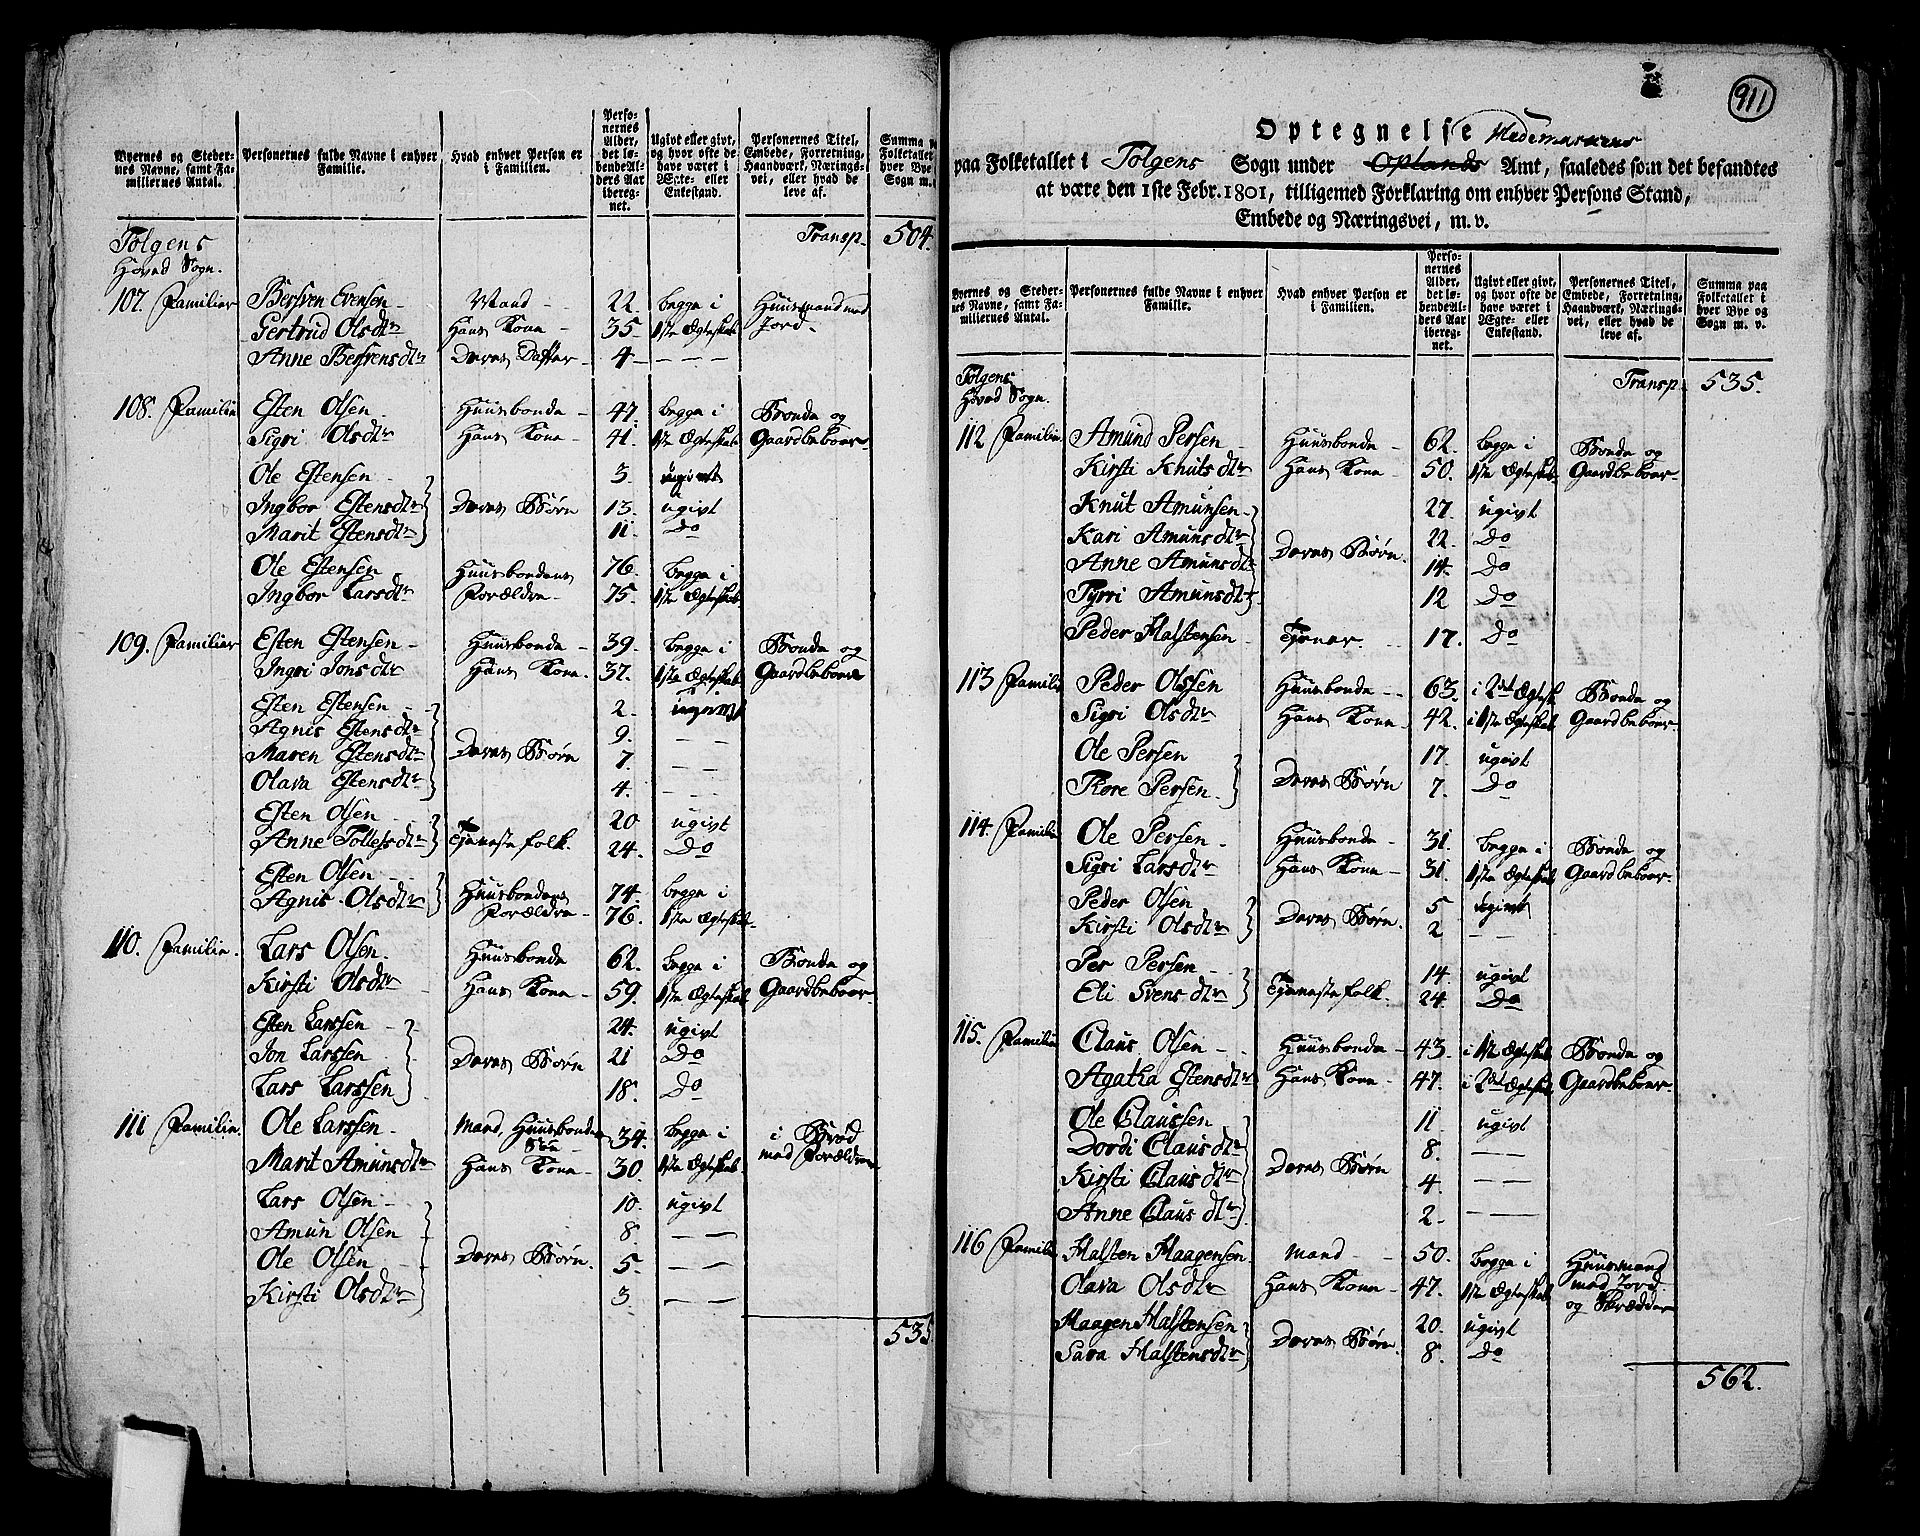 Byernes og Steder-
nes Navne, samt Fa-
miliernes Antal.
Personernes fulde Navne i enhver
Familie.
Hvad enhver Person er
i Familien.
Perso-
nernes
Alder,
det lø-
bende Al-
ders Aar
iberег-
net.
Ugivt eller givt,
og hvor ofte de
have været i
Ægte- eller
Enkestand.
Personernes Titel,
Embede, Forretning,
Haandværk, Nærings-
vei, eller hvad de
leve af.
Summa pa
Folketallet
hver Bye o
Sogn m.
Tolgens Transp. 504.
Hoved Sogn.
107. Familier Bersven Evensen Mand 22. begge i Huusmand med
Gertrud Olsdtr Hans Kone 35 1ste Ægteskab Jord.
Anne Bersvensdtr Deres Datter 4 — —
108. Familie Esten Olsen Huusbonde 47. begge i Bonde og
Sigri Olsdtr Hans Kone 41. 1ste Ægteskab Gaardbeboer
Ole Estensen 3. ugivt
Ingbor Estensdtr Deres Børn 13. ugivt
Marit Estensdtr 11. Do
Ole Estensen Huusbondens 76. begge i
Ingbor Larsdtr Forældre 75. 1ste Ægteskab
109. Familier Esten Estensen Huusbonde 39. begge i Bonde og
Ingri Jonsdtr Hans Kone 37. 1ste Ægteskab Gaardbeboer
Esten Estensen 2. ugivt
Agnis Estensdtr 9. — —
Maren Estensdtr Deres Børn 7. — —
Olava Estensdtr 4. — —
Esten Olsen 20 ugivt
Anne Tollefsdtr Tjenestefolk. 24. Do
Esten Olsen Huusbondens 74 begge i
Agnis Olsdtr Forældre 76. 1ste Ægteskab
110. Familie. Lars Olsen Huusbonde 62. begge i Bonde og
Kirsti Olsdtr Hans Kone 59. 1ste Ægteskab Gaardbeboer
Esten Larssen 24. ugivt
Jon Larssen Deres Børn 21 Do
Lars Larssen 18. Do
111 Familie. Ole Larssen Mand, Huusbondens 34. begge i i Brød
Søn
Marit Amunsdtr Hans Kone 30. 1ste Ægteskab. med Forældre
Lars Olsen 10. ugivt
Amun Olsen 8. — —
Ole Olsen Deres Børn. 5. — —
Kirsti Olsdtr 3. — —
535
911
Optegnelse Hedemarkens
paa Folketallet i Tolgens Sogn under Oplands Amt, saaledes som det befandtes
at være den 1ste Febr. 1801, tilligemed Forklaring om enhver Persons Stand,
Embede og Næringsvei, m. v.
Byernes og Steder-
nes Navne, samt Fa-
miliernes Antal.
Personernes fulde Navne i enhver
Familie.
Hvad enhver Person er
i Familien.
Perso-
nernes
Alder,
det lø-
bende Al-
ders Aar
ibereg-
net.
Ugivt eller givt,
og hvor ofte de
have været i
Ægte- eller
Enkestand.
Personernes Titel,
Embede, Forretning,
Haandværk, Nærings-
vei, eller hvad de
leve af.
Summa paa
Folketallet i
hver Bye og
Sogn m. v.
Tolgens Transp. 535.
Hoved Sogn.
112 Familie Amund Persen Huusbonde 62. begge i Bonde og
Kirsti Knutsdtr Hans Kone 50. 1ste Ægteskab Gaardbeboer
Knut Amunsen 27. ugivt
Kari Amunsdtr 22. Do
Anne Amunsdtr Deres Børn. 14. Do
Tyrri Amunsdtr 12 Do
Peder Halstensen Tjener 17. Do
113 Familie Peder Olssen Huusbonde 63. i 2det Ægtesk Bonde og
Sigri Olsdtr Hans Kone 42. i 1ste Ægteskab Gaardbeboer
Ole Persen 17. ugivt
Tore Persen Deres Børn 7. Do
114. Familie Ole Persen Huusbonde 31. begge i Bonde og
Sigri Larsdtr Hans Kone 31. 1ste Ægteskab Gaardbeboer
Peder Olsen 5 ugivt
Kirsti Olsdtr Deres Børn. 2 — —
Per Persen 14. ugivt
Eli Svensdtr Tjenestefolk. 24. Do
115. Familie Claus Olsen Huusbonde 43. i 1ste Ægteskab Bonde og
Agatha Estensdtr Hans Kone 47. i 2det Ægteskab Gaardbeboer
Ole Claussen 11. ugivt
Dordi Clausdtr 8. — —
Kirsti Clausdtr Deres Børn 4. — —
Anne Clausdtr 2 — —
116 Familie Halsten Haagensen Mand 50. begge i Huusmand
Olava Olsdtr Hans Kone 47. 1ste Ægteskab med Jord
og Skrædder
Haagen Halstensen 20. ugivt
Sara Halstensdtr Deres Børn 8. Do
562.